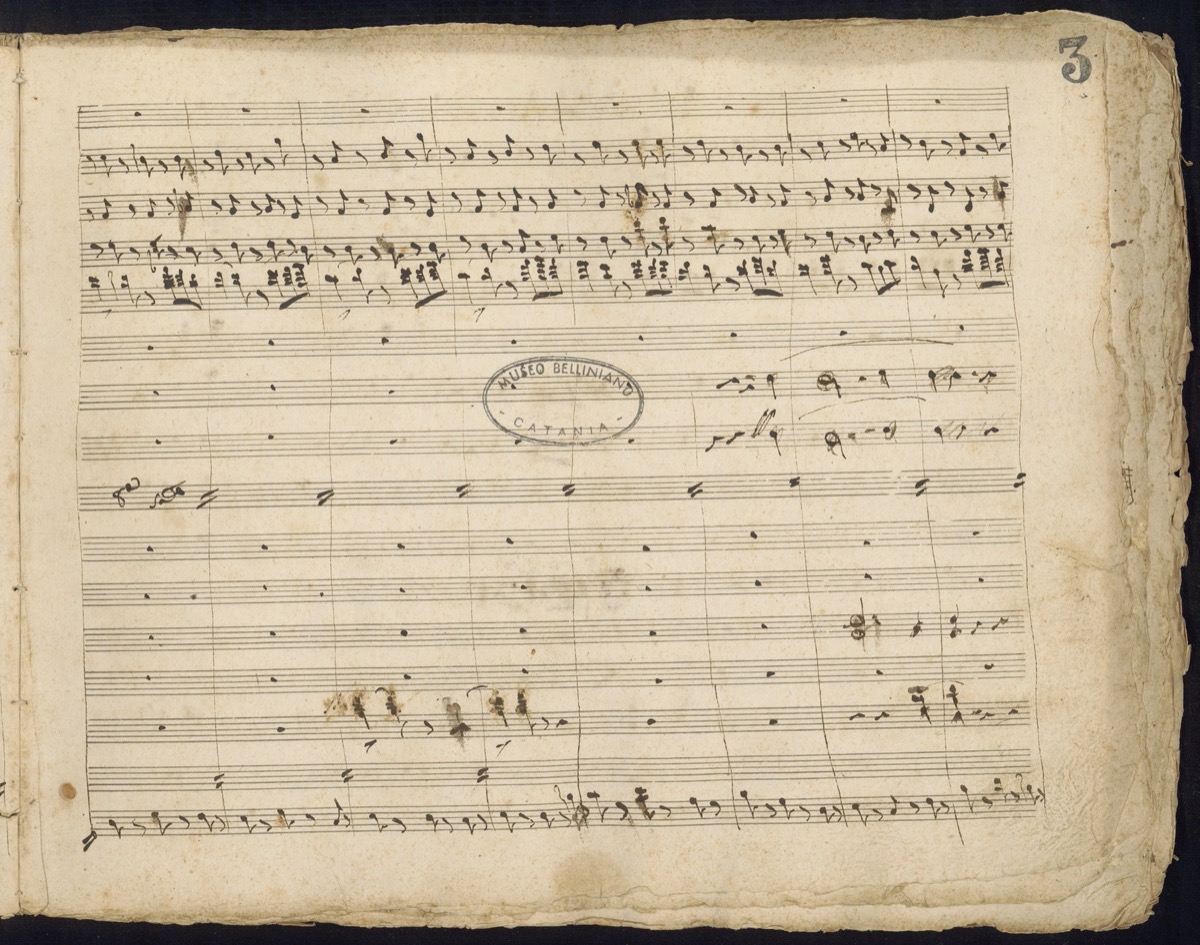 3
MUSEO BELLINIANO
- CATANIA -